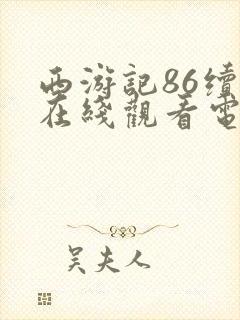 西游記86續
在綫觀看電
吴夫人